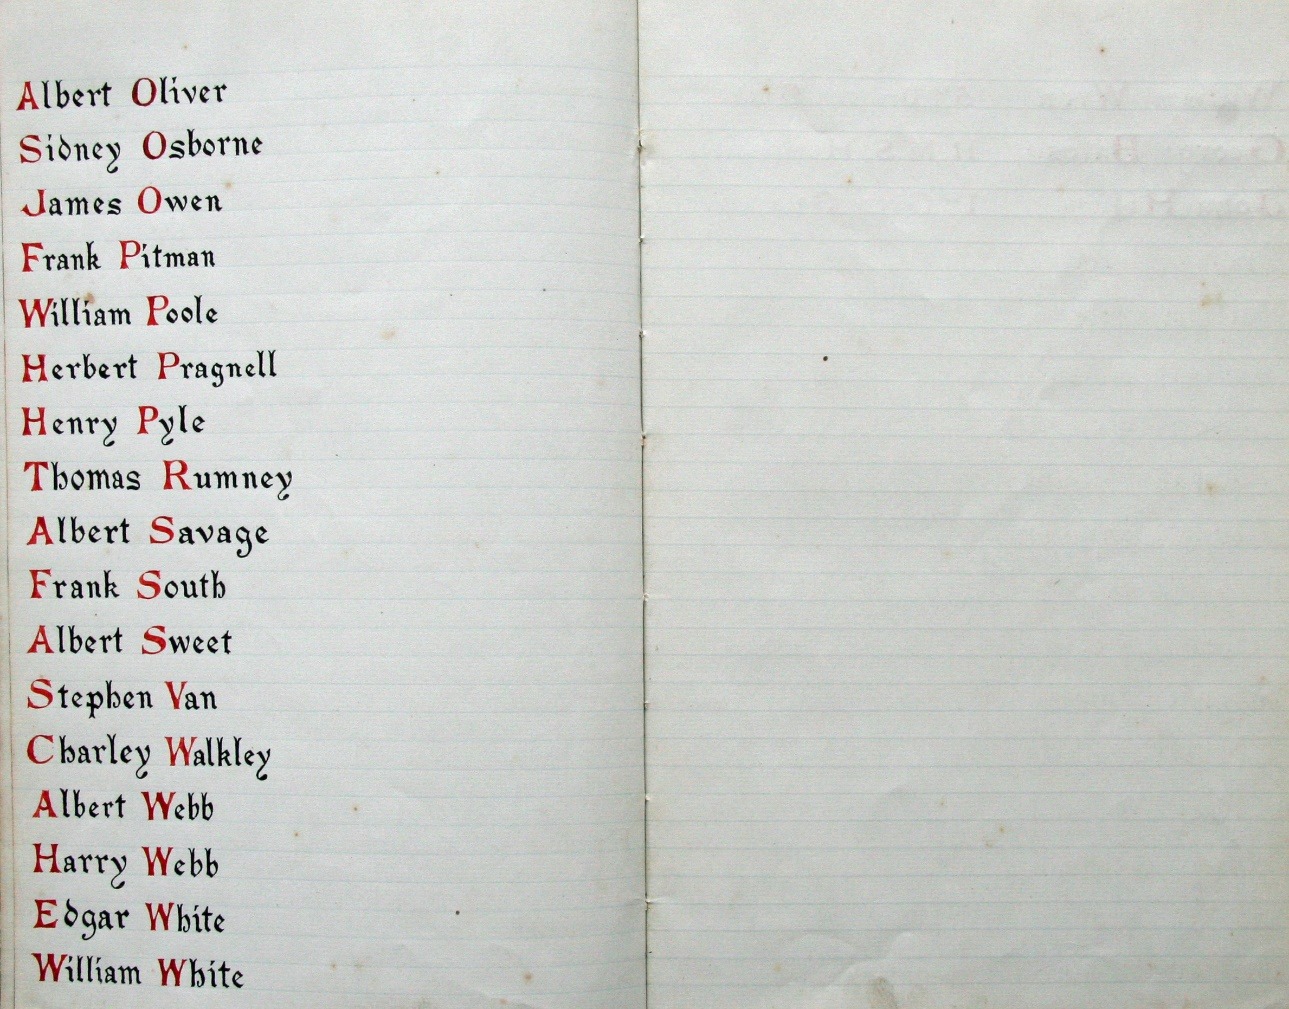 Albert Oliver
Sidney Osborne
James Owen
Frank Pitman
William Poole
Herbert Pragnell
Henry Pyle
Thomas Rumney
Albert Savage
Frank South
Albert Sweet
Stephen Van
Charley Walkley
Albert Webb
Harry Webb
Edgar White
William White